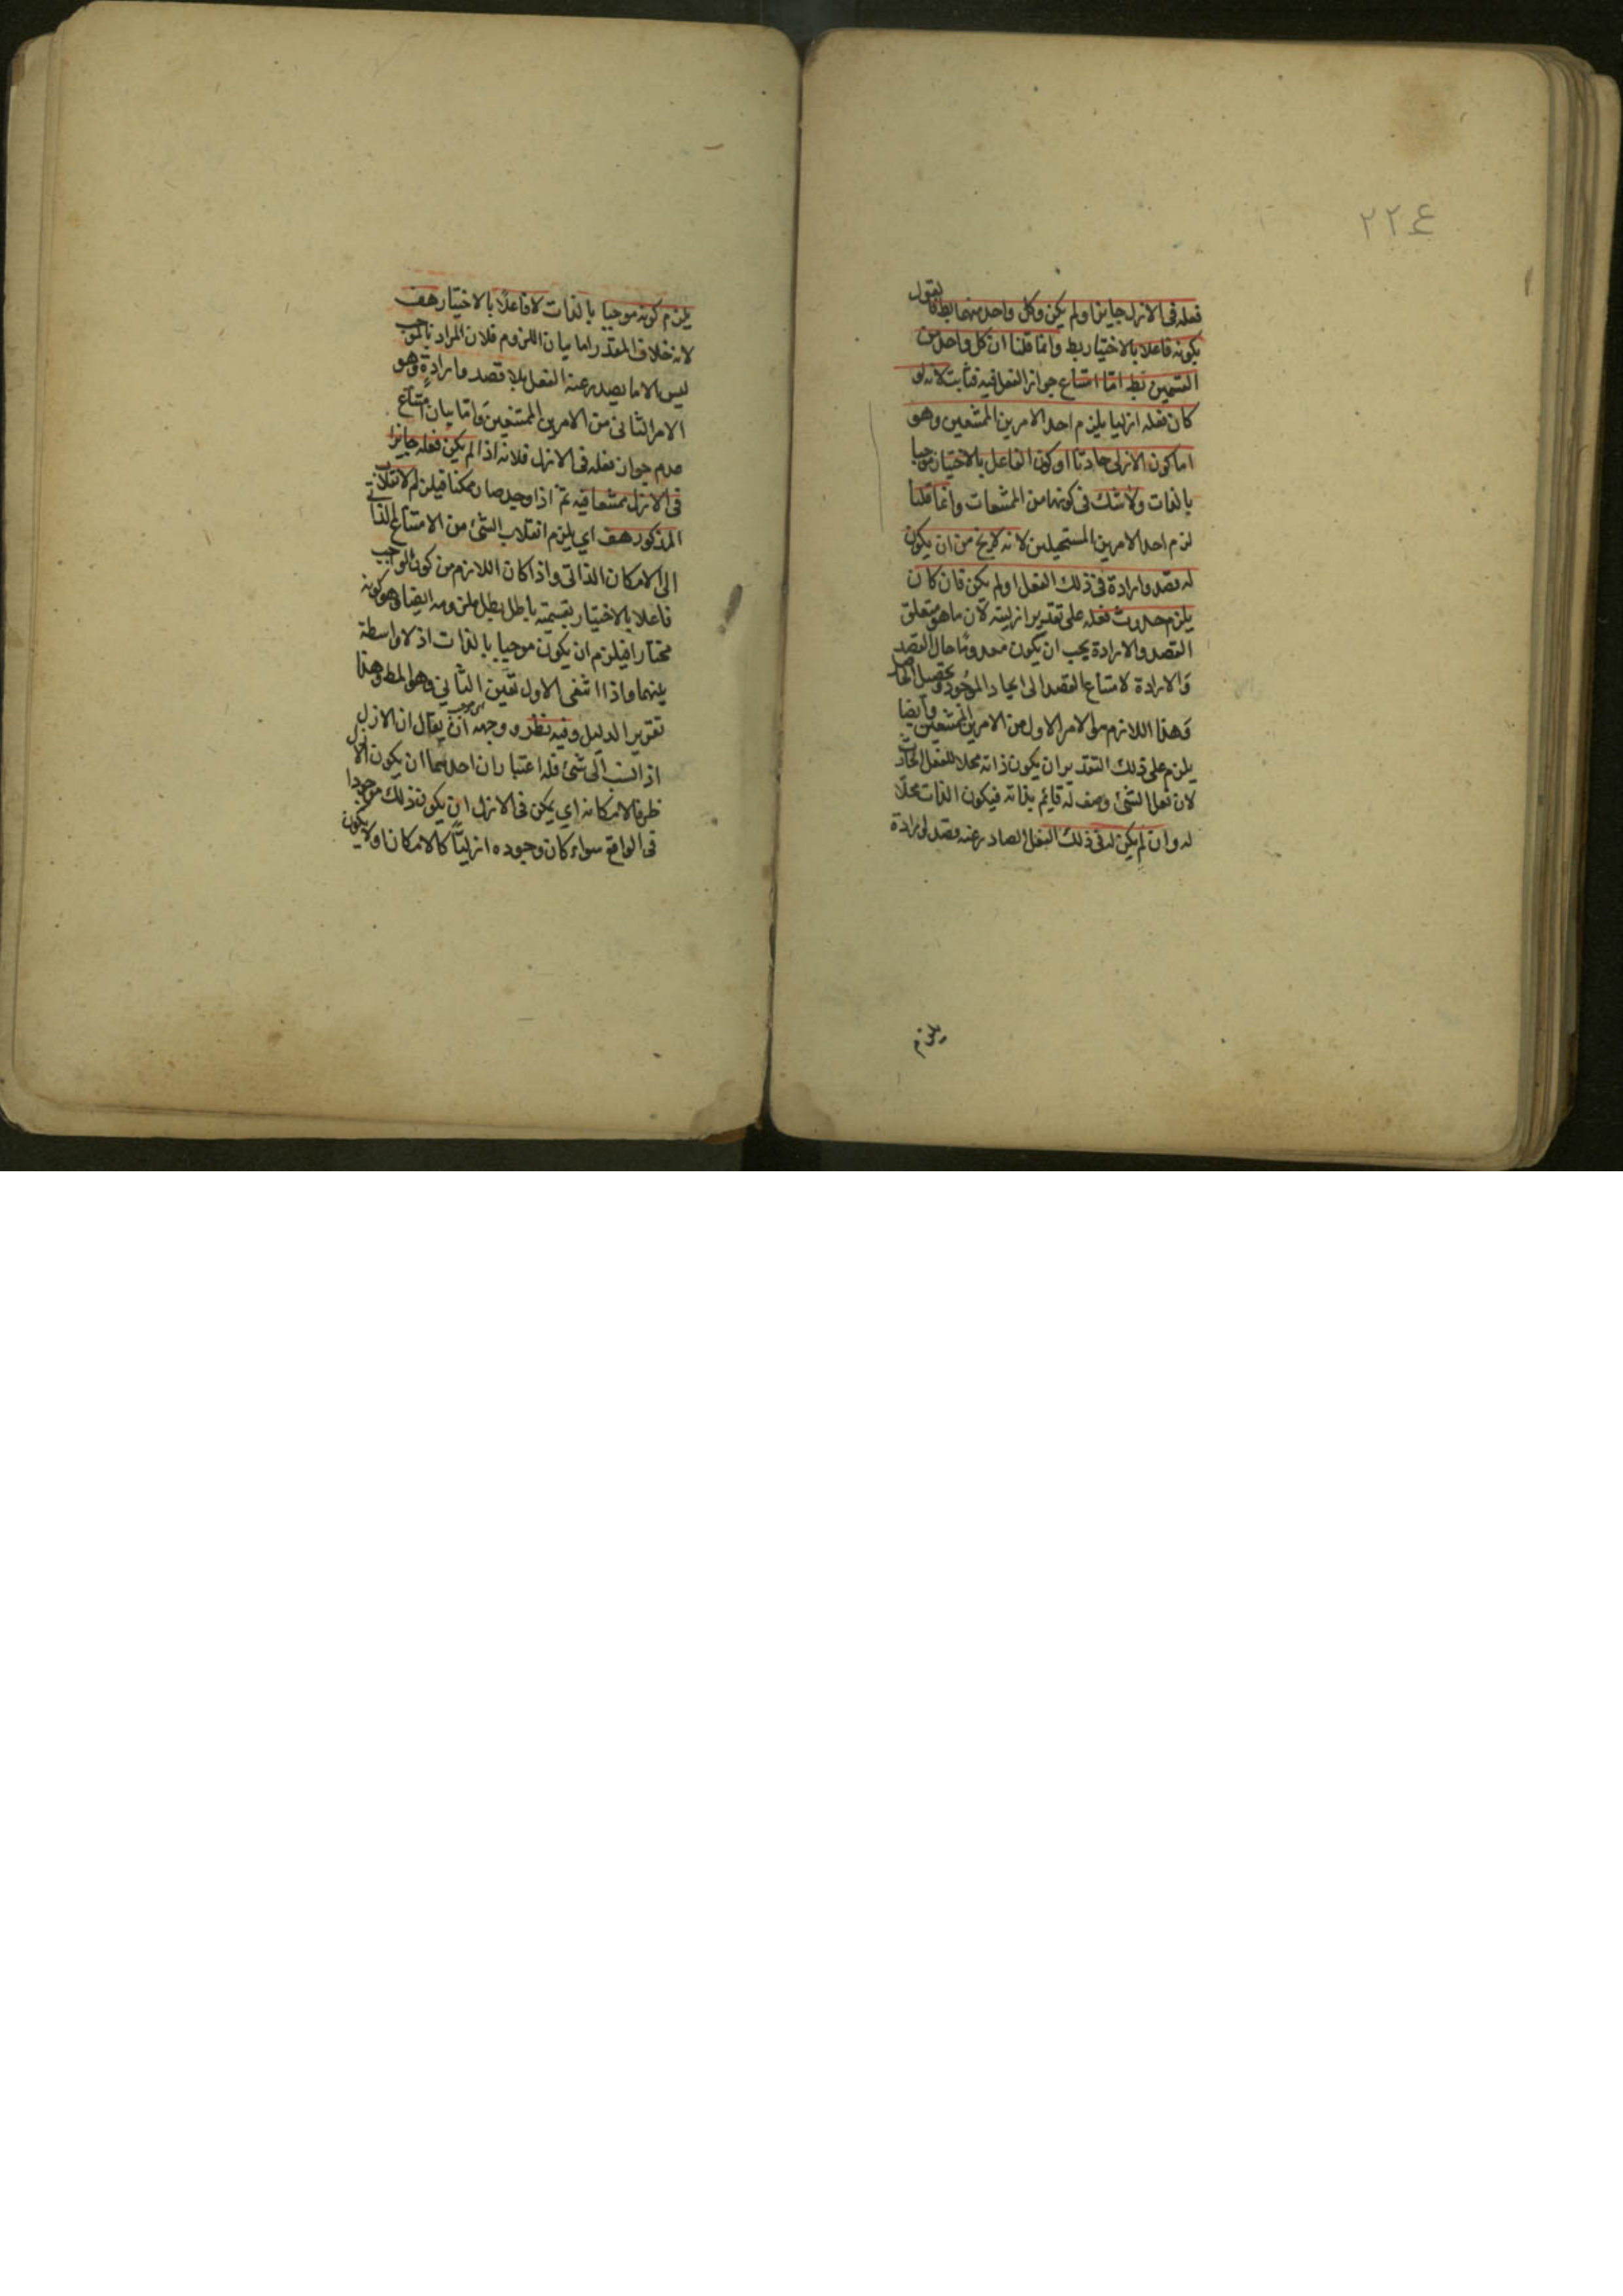 ٢٢٤
فعله فى الازل جايزا ولم يكن وكل واحد منهما بط فالقول
بكونه فاعلا بالاختيار بط وانما قلنا ان كل واحد من
القسمين بط اما امتناع جواز الفعل فيه فثابت لانه لو
كان فعله ازليا يلزم احد الامرين الممتنعين وهو
اما كون الازلى حادثا او كون الفاعل بالاختيار موجبا
بالذات ولا شك فى كونهما من الممتنعات وانما قلنا
لزم احد الامرين المستحيلين لانه لا يخ من ان يكون
له قصد وارادة فى ذلك الفعل او لم يكن فان كان
يلزم حدوث فعله على تقدير ازليته لان ما هو متعلق
القصد والارادة يجب ان يكون معدوما حال القصد
والارادة لامتناع القصد الى ايجاد الموجود وتحصيل الحاصل
وهذا اللازم هو الامر الاول من الامرين الممتنعين وايضا
يلزم على ذلك التقدير ان يكون ذاته محلا للفعل الحادث
لان فعل الشئ وصف له قايم بذاته فيكون الذات محلا
له وان لم يكن له فى ذلك الفعل الصادر عنه قصد وارادة
يلزم
يلزم كونه موجبا بالذات لا فاعلا بالاختيار هف
لانه خلاف المقدر اما بيان اللزوم فلان المراد بالموجب
ليس الا ما يصدر عنه الفعل بلا قصد وارادة وهو
الامر الثانى من الامرين الممتنعين واما بيان امتناع
عدم جواز فعله فى الازل فلانه اذا لم يكن فعله جايزا
فى الازل ممتنعا فيه ثم اذا وجد صار ممكنا فيلزم الانقلاب
المذكور هف اي يلزم انقلاب الشئ من الامتناع الذاتى
الى الامكان الذاتى واذا كان اللازم من كون الواجب
فاعلا بالاختيار بقسميه باطل بطل ملزومه ايضا وهو كونه
مختارا فيلزم ان يكون موجبا بالذات اذ لا واسطة
بينهما واذا انتفى الاول تعين الثاني وهو المط وهذا
تقرير الدليل وفيه نظر ووجهه ان يقال ان الازل
اذا نسب الى شئ فله اعتباران احدهما ان يكون الازل
ظرفا لامكانه اي يمكن فى الازل ان يكون ذلك موجودا
فى الواقع سواء كان وجوده ازليا كالامكان اولا يكون